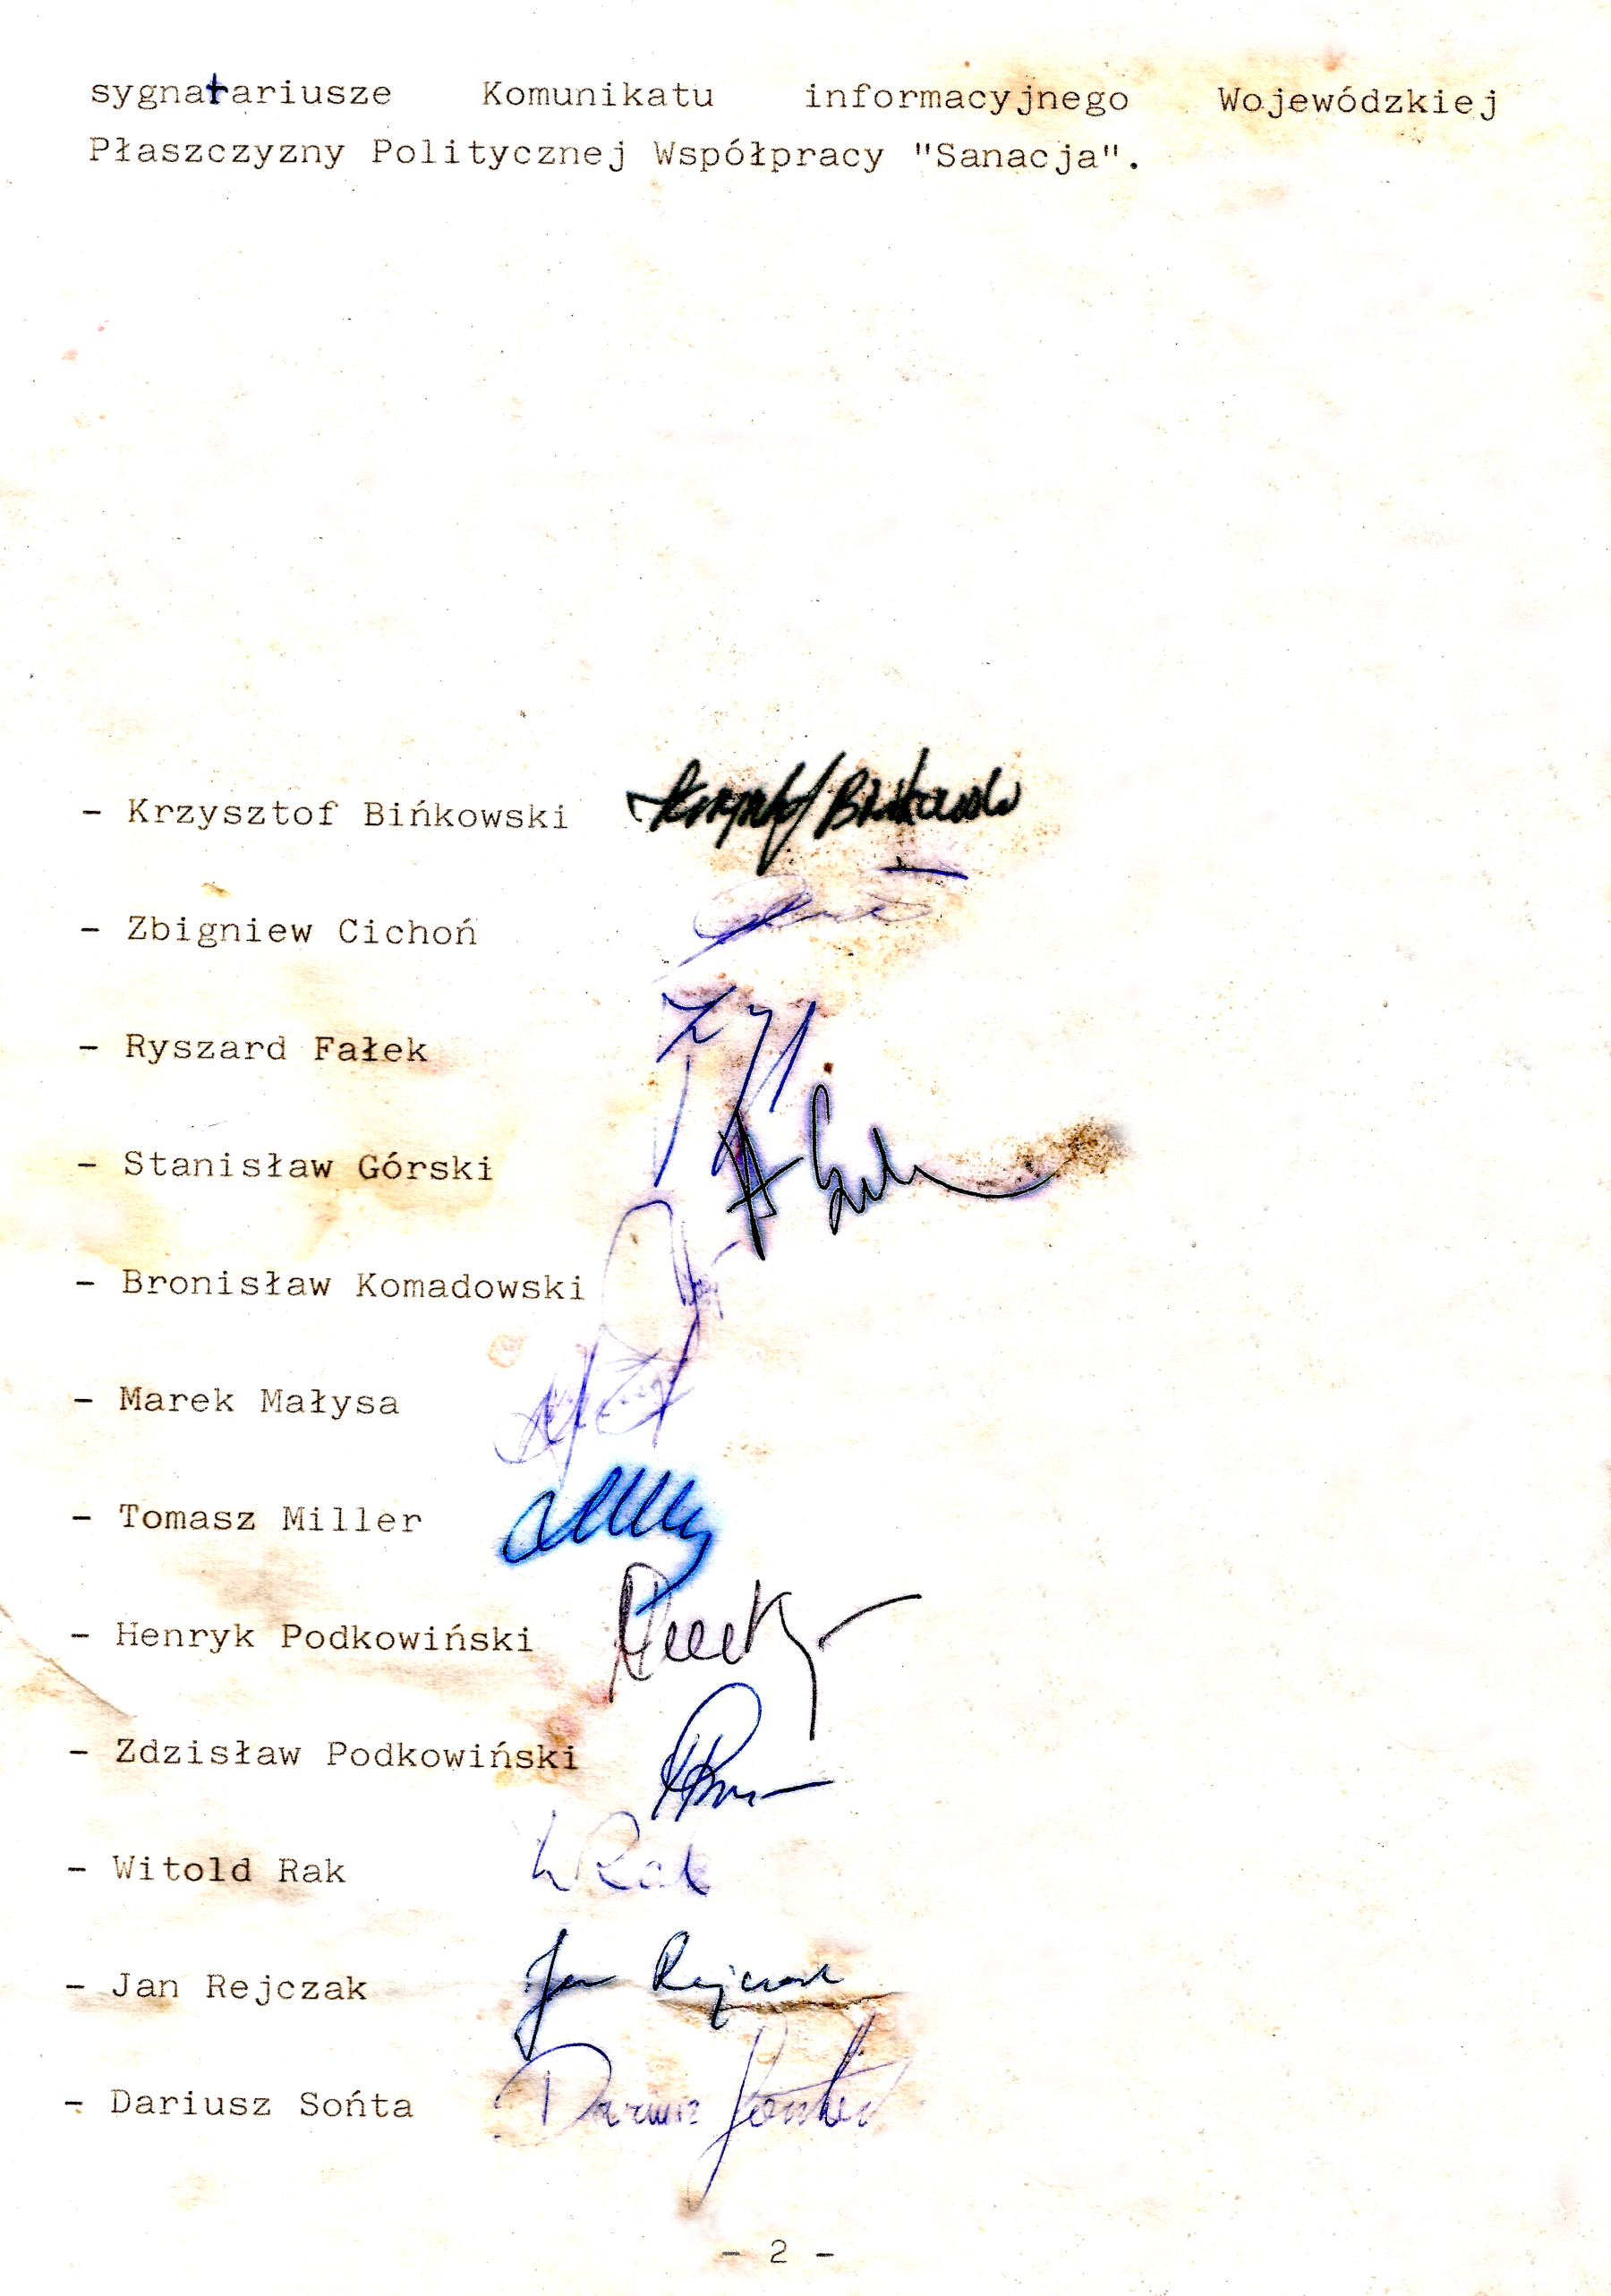 sygnatariusze Komunikatu informacyjnego Wojewódzkiej
Płaszczyzny Politycznej Współpracy "Sanacja".
- Krzysztof Bińkowski Krzysztof Bińkowski
- Zbigniew Cichoń
- Ryszard Fałek
- Stanisław Górski
- Bronisław Komadowski
- Marek Małysa
- Tomasz Miller
- Henryk Podkowiński
- Zdzisław Podkowiński
- Witold Rak W Rak
- Jan Rejczak Jan Rejczak
- Dariusz Sońta Dariusz Sońta
- 2 -